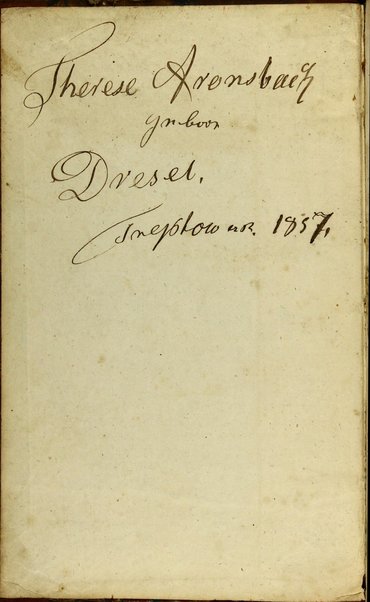 Therese Aronsbach
geboren
Dresel.
Treptow a/R. 1857.